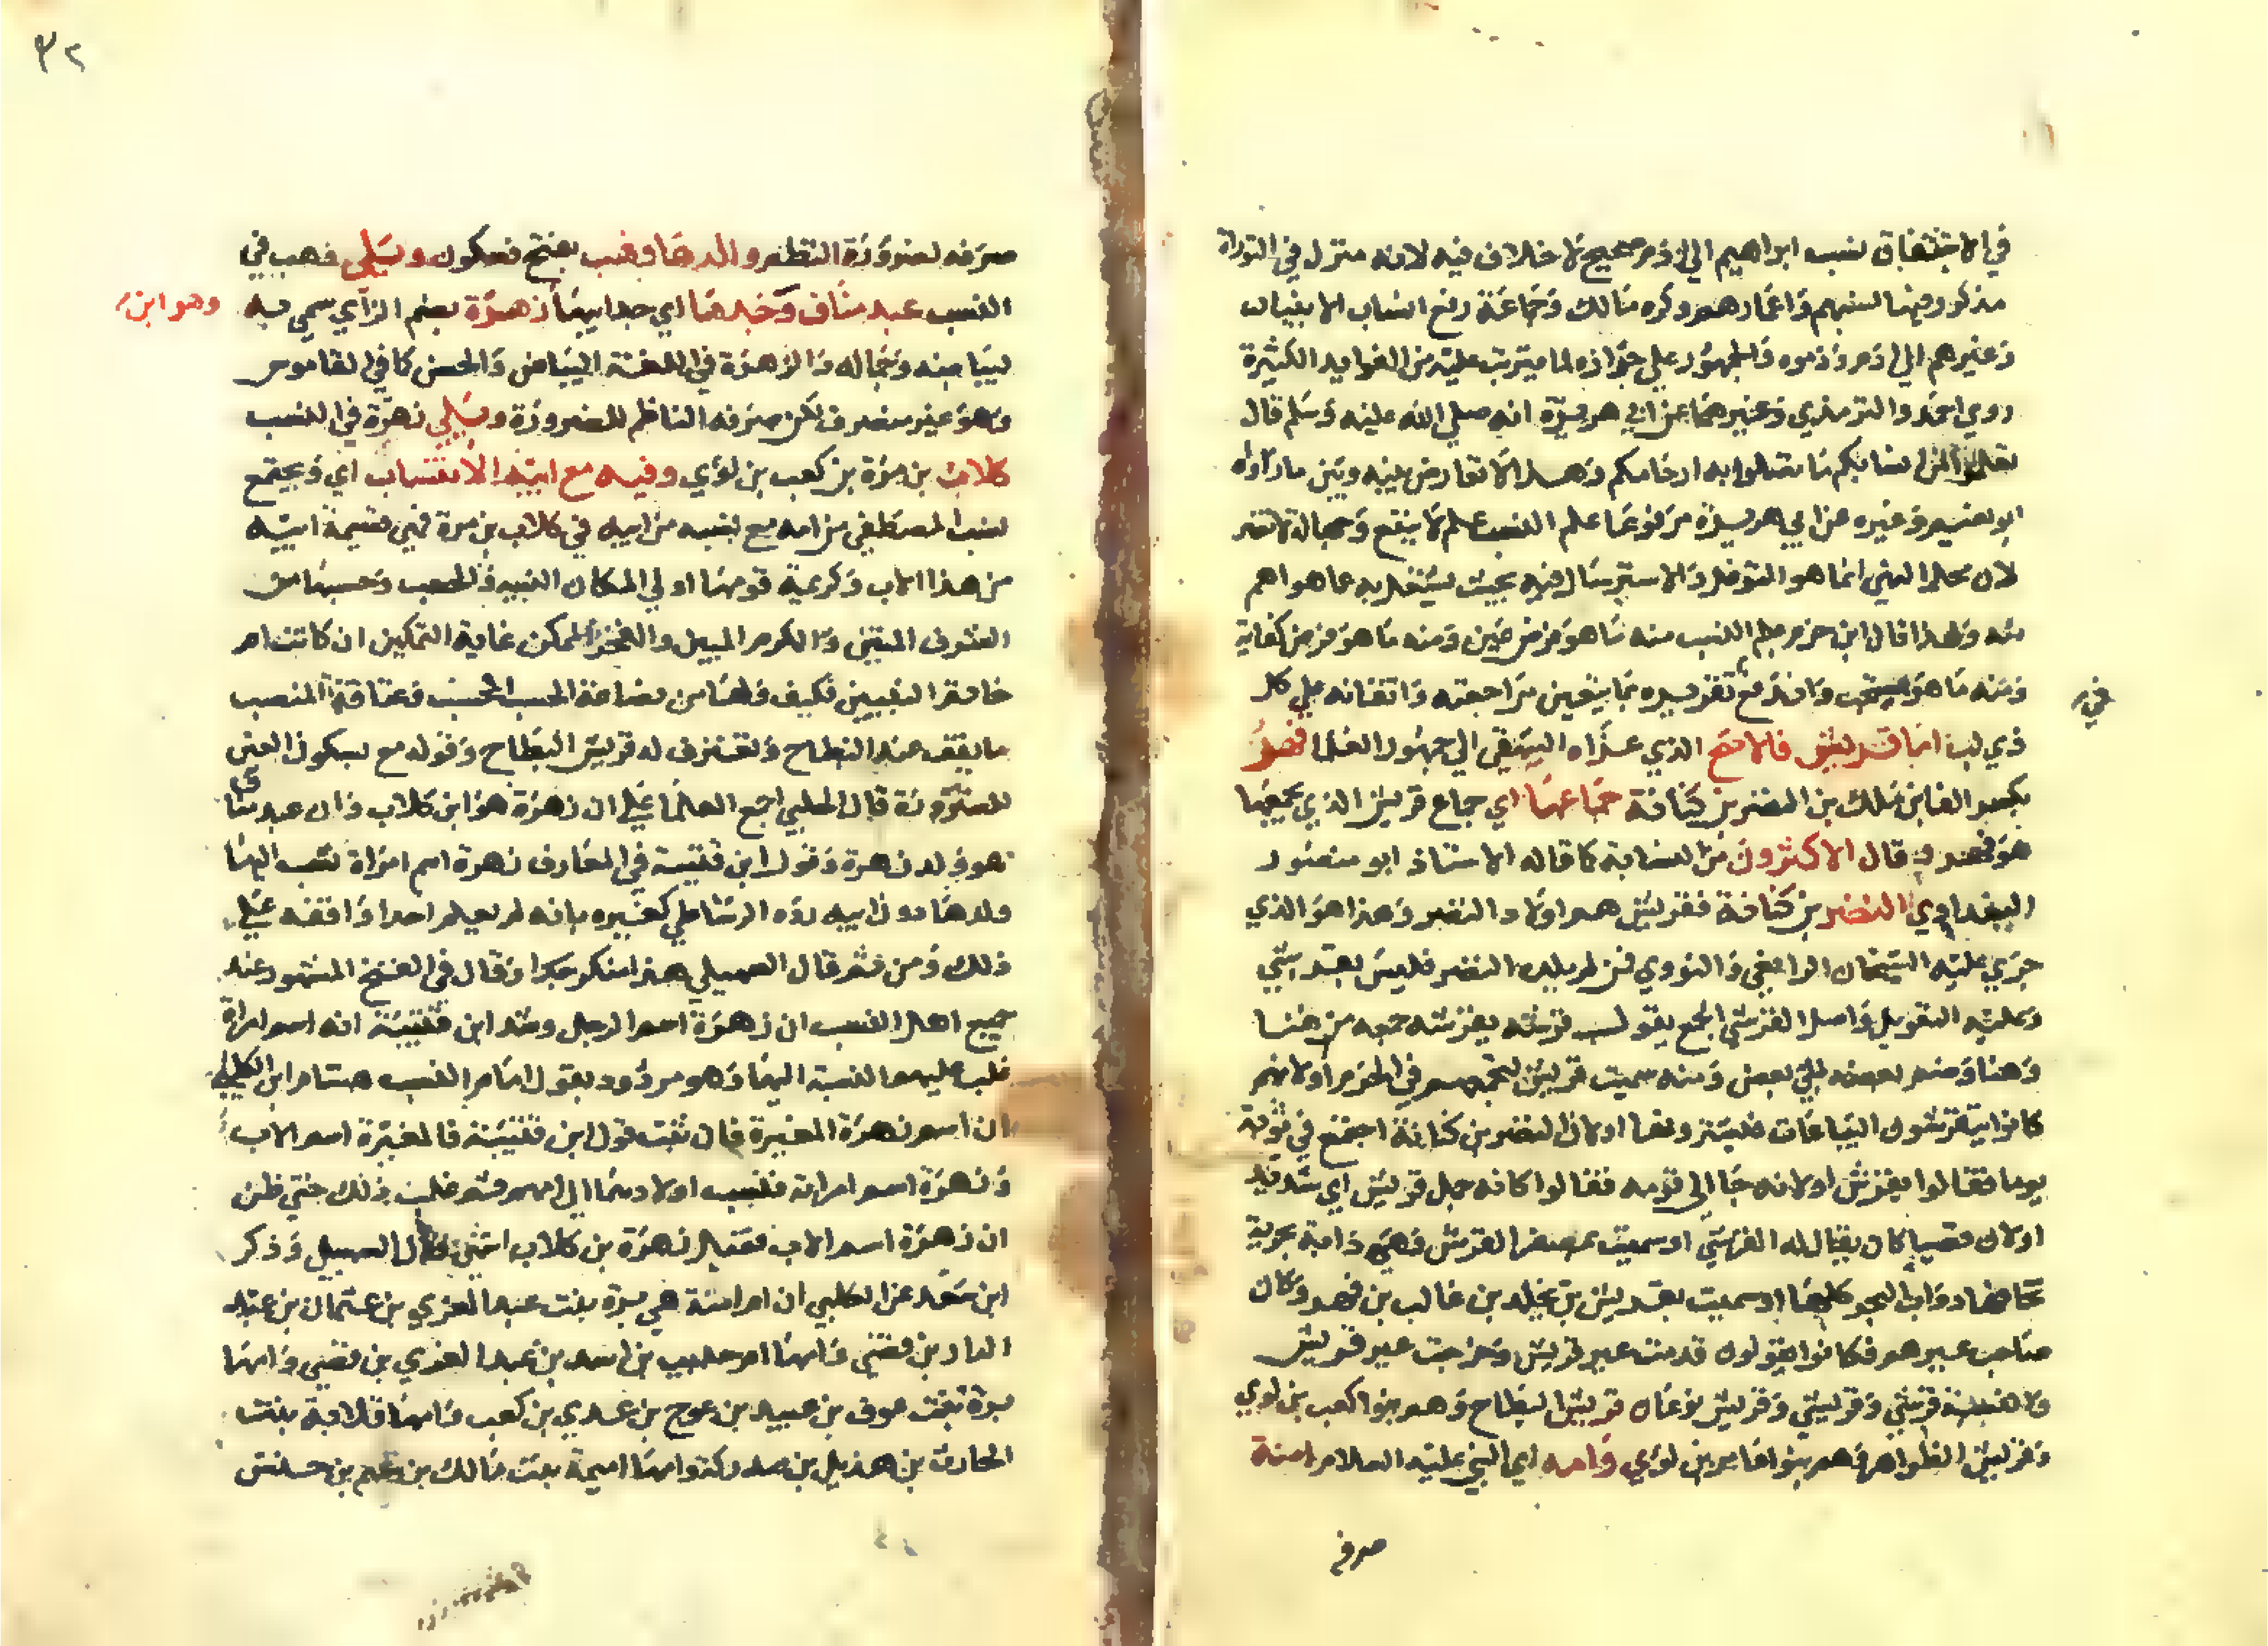 في الاشتقاق نسب ابراهيم الي ادم صحيح لا خلاف فيه لانه منزل في التوراة
مذكور فيها نسبهم واعمارهم وكره مالك وجماعة رفع انساب الانبيا
وغيرهم الي ادم وذموه والجمهور علي جوازه لما يترتب عليه من الفوايد الكثيرة
روي احمد والترمذي وغيرهما عن ابي هريرة انه صلي الله عليه وسلم قال
تعلموا من انسابكم ما تصلوا به ارحامكم وهذا لا تعارض بينه وبين ما رواه
ابو نعيم وغيره عن ابي هريرة مرفوعا علم النسب علم لا ينفع وجهالة لا تضر
لان محل النهي انما هو التوغل والاسترسال فيه بحيث يشتغل به عما هو اهم
منه ولهذا قال ابن حزم علم النسب منه ما هو فرض عين ومنه ما هو فرض كفاية
ومنه ما هو مستحب تقريره بما يتعين مراجعته واتقانه علي كل
في
ذي لب اما قريش فالاصح الذي عزاه البيهقي الي جمهور العلما فهر
بكسر الفا ابن مالك بن النضر بن كنانة جماعها اي جماع قريش الذي يجمعها
هو فهر وقال الاكثرون من النسابة كما قاله الاستاذ ابو منصور
البغدادي النضر بن كنانة فقريش هم اولاد النضر وهذا هو الذي
جري عليه الشيخان الرافعي والنووي فمن لم يلده النضر فليس بقرشي
وعليه التعويل واصل القرش الجمع يقول قرشه يقرشه جمعه من هنا
وهنا وضم بعضه الي بعض ومنه سميت قريش لتجمعهم في الحرم او لانهم
كانوا يتقرشون البياعات او لان النضر بن كنانة اجتمع في ثوبه
يوما فقالوا تقرش او لانه جا الي قومه فقالوا كانه جمل قريش اي شديد
او لان قصيا كان يقال له القرشي او سميت بمصغر القرش وهي دابة بحرية
تخافها دواب البحر كلها او سميت بقريش بن يخلد بن غالب بن فهر وكان
صاحب عيرهم فكانوا يقولون قدمت عير قريش وخرجت عير قريش
والنسبة قرشي وقريشي وقريش نوعان قريش البطاح وهم بنوا كعب بن لوي
وقريش الظواهر وهم بنوا عامر بن لوي وامه اي النبي عليه السلام امنة
صرفه
٣٢
صرفه لضرورة النظم والدها وهب بفتح فسكون ويلي وهب في
النسب عبد مناف وجدها اي جد ابيها زهرة بضم الزاي سمي به
وهو ابن
لبياضه وجماله والزهرة في اللغة البياض والحسن كما في القاموس
وهو غير منصرف لكن صرفه الناظم للضرورة ويلي زهرة في النسب
كلاب بن مرة بن كعب بن لؤي وفيه مع ابيه الانتساب اي ويجتمع
نسب المصطفي من امه مع نسبه من ابيه في كلاب بن مرة فهي قسيمة ابيه
من هذا الاب وكريمة قومها اولي المكان النبيه في الحسب وحسبها من
الشرف المتين والكرم المبين والفخر الممكن غاية التمكين ان كانت ام
خاتم النبيين فكيف ولها من نضاعة الحسب وعتاقة المنصب
ما يقف عند النطاح وتعترف له قريش البطاح وقوله مع بسكون العين
للضرورة قال الحلبي اجمع العلما علي ان زهرة هو ابن كلاب وان عبد مناف
هو ولد زهرة وقول ابن قتيبة في المعارف زهرة اسم امراة نسب اليها
ولدها دون ابيه رده الرشاطي كغيره بانه لم يعلم احدا وافقه علي
ذلك ومن ثم قال السهيلي هذا منكر جدا وقال في الفتح المشهور عند
جميع اهل النسب ان زهرة اسم الرجل وشذ ابن قتيبة انه اسم امراة
غلب عليهم النسبة اليها وهو مردود بقول امام النسب هشام ابن الكلبي
ان اسم زهرة المغيرة فان ثبت قول ابن قتيبة فالمغيرة اسم الاب
وزهرة اسم امراته فنسب اولادهما الي امهم ثم غلب ذلك حتي ظن
ان زهرة اسم الاب فقيل زهرة بن كلاب انتهي قال السهيلي وذكر
ابن سعد عن الكلبي ان ام امنة هي برة بنت عبد العزي بن عثمان بن عبد
الدار بن قصي وامها ام حبيب بن اسد بن عبد العزي بن قصي وامها
برة بنت عوف بن عبيد بن عوج بن عدي بن كعب وامها قلابة بنت
الحارث بن هذيل بن وامها اميمة بنت مالك بن غنم بن